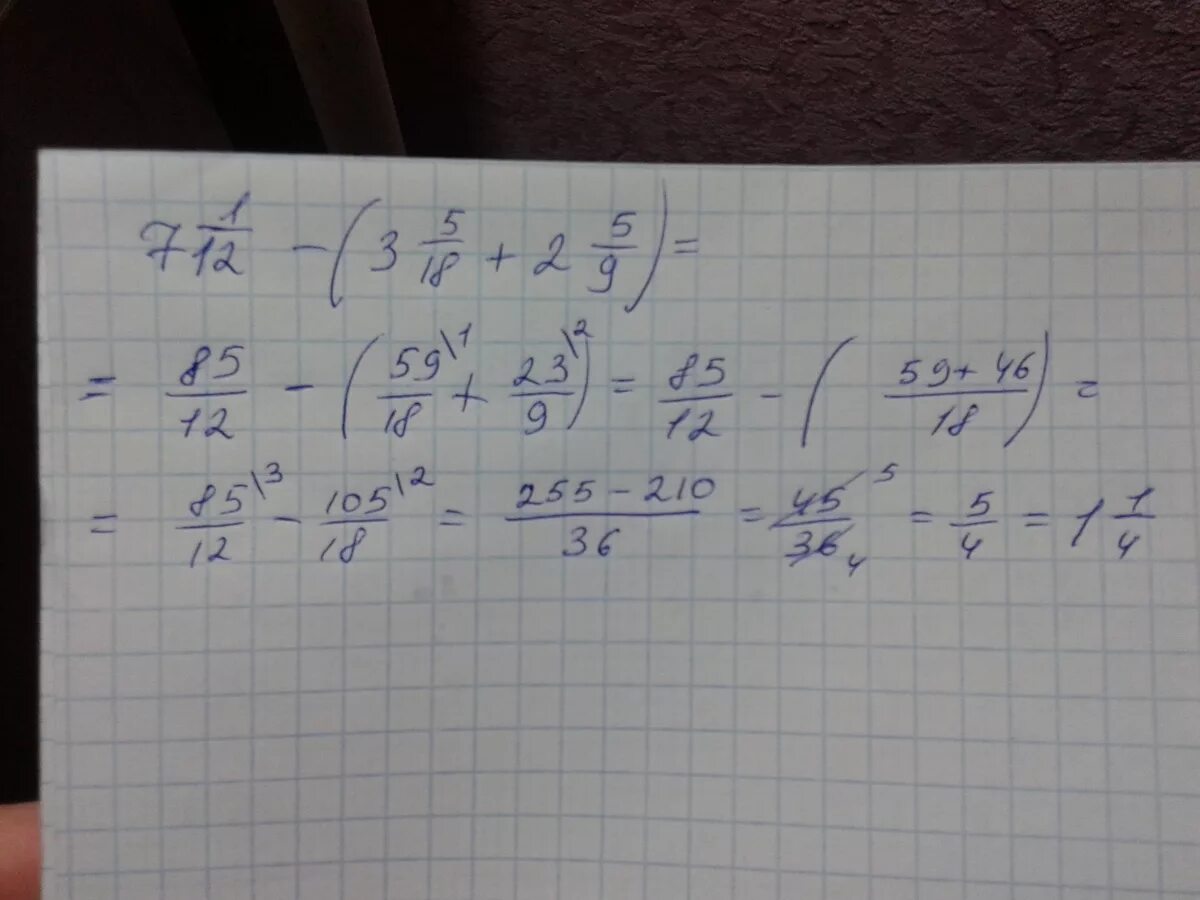 7 1/12 - (3 5/18 + 2 5/9) =
= 85/12 - (59\1/18 + 23\2/9) = 85/12 - (59+46/18) =
= 85\3/12 - 105\2/18 = 255-210/36 = 45 5/36 4 = 5/4 = 1 1/4